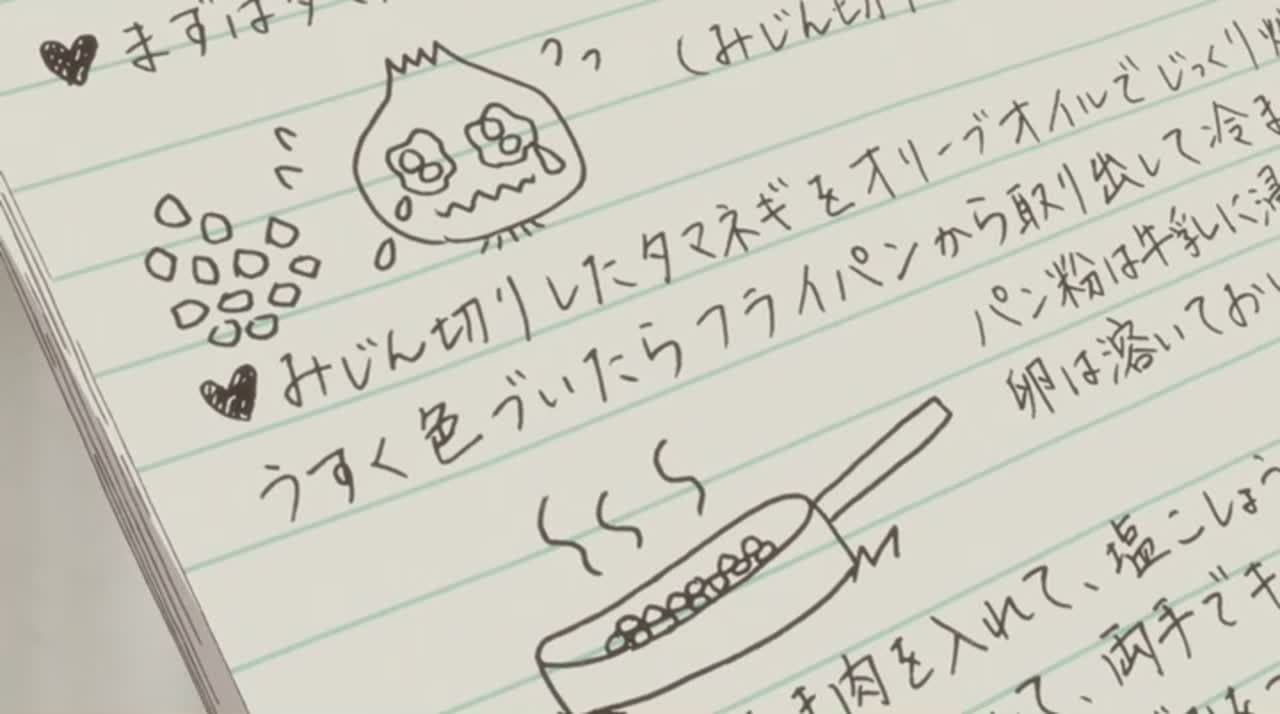 ♥ まずは
(みじん切り
♥ みじん切りしたタマネギをオリーブオイルでじっくり炒
うすく色づいたらフライパンから取り出して冷ま
パン粉は牛乳に浸
卵は溶いておい
き肉を入れて、塩こしょう
て、両手で